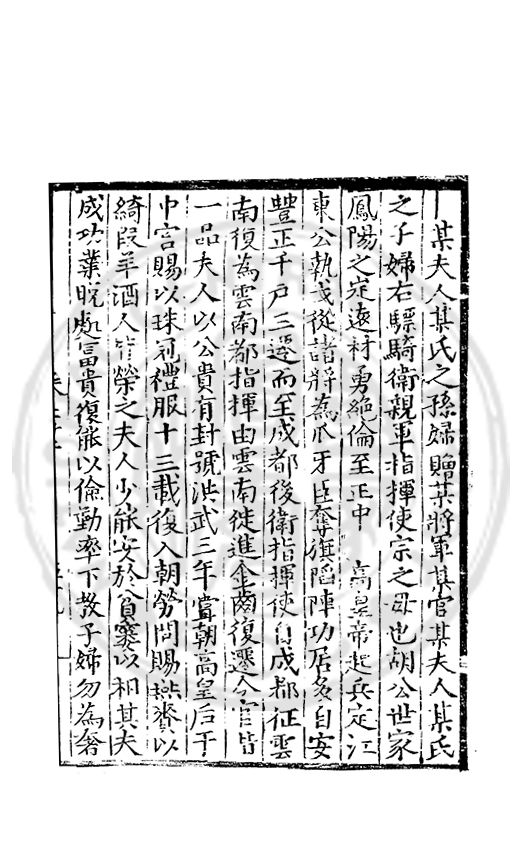 某夫人某氏之孫婦贈某將軍某官某夫人某氏
之子婦右驃騎衛親軍指揮使宗之母也胡公世家
鳳陽之定遠材勇絶倫至正中　高皇帝起兵定江
東公執戎從諸將為爪牙臣奪旗陷陣功居多自安
豐正千戶三遷而至成都後衛指揮使自成都征雲
南復為雲南都指揮由雲南徙進金齒復遷今官皆
一品夫人以公貴有封號洪武三年嘗朝高皇后于
中宮賜以珠冠禮服十三載復入朝勞問賜燕賚以
綺段羊酒人皆榮之夫人少能安於貧窶以相其夫
成功業晚處富貴復能以儉勤率下教子婦勿為奢